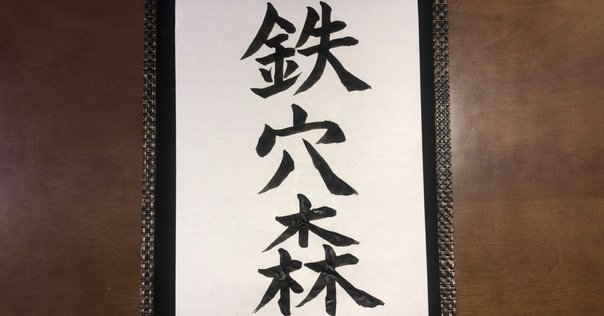 鉄穴森